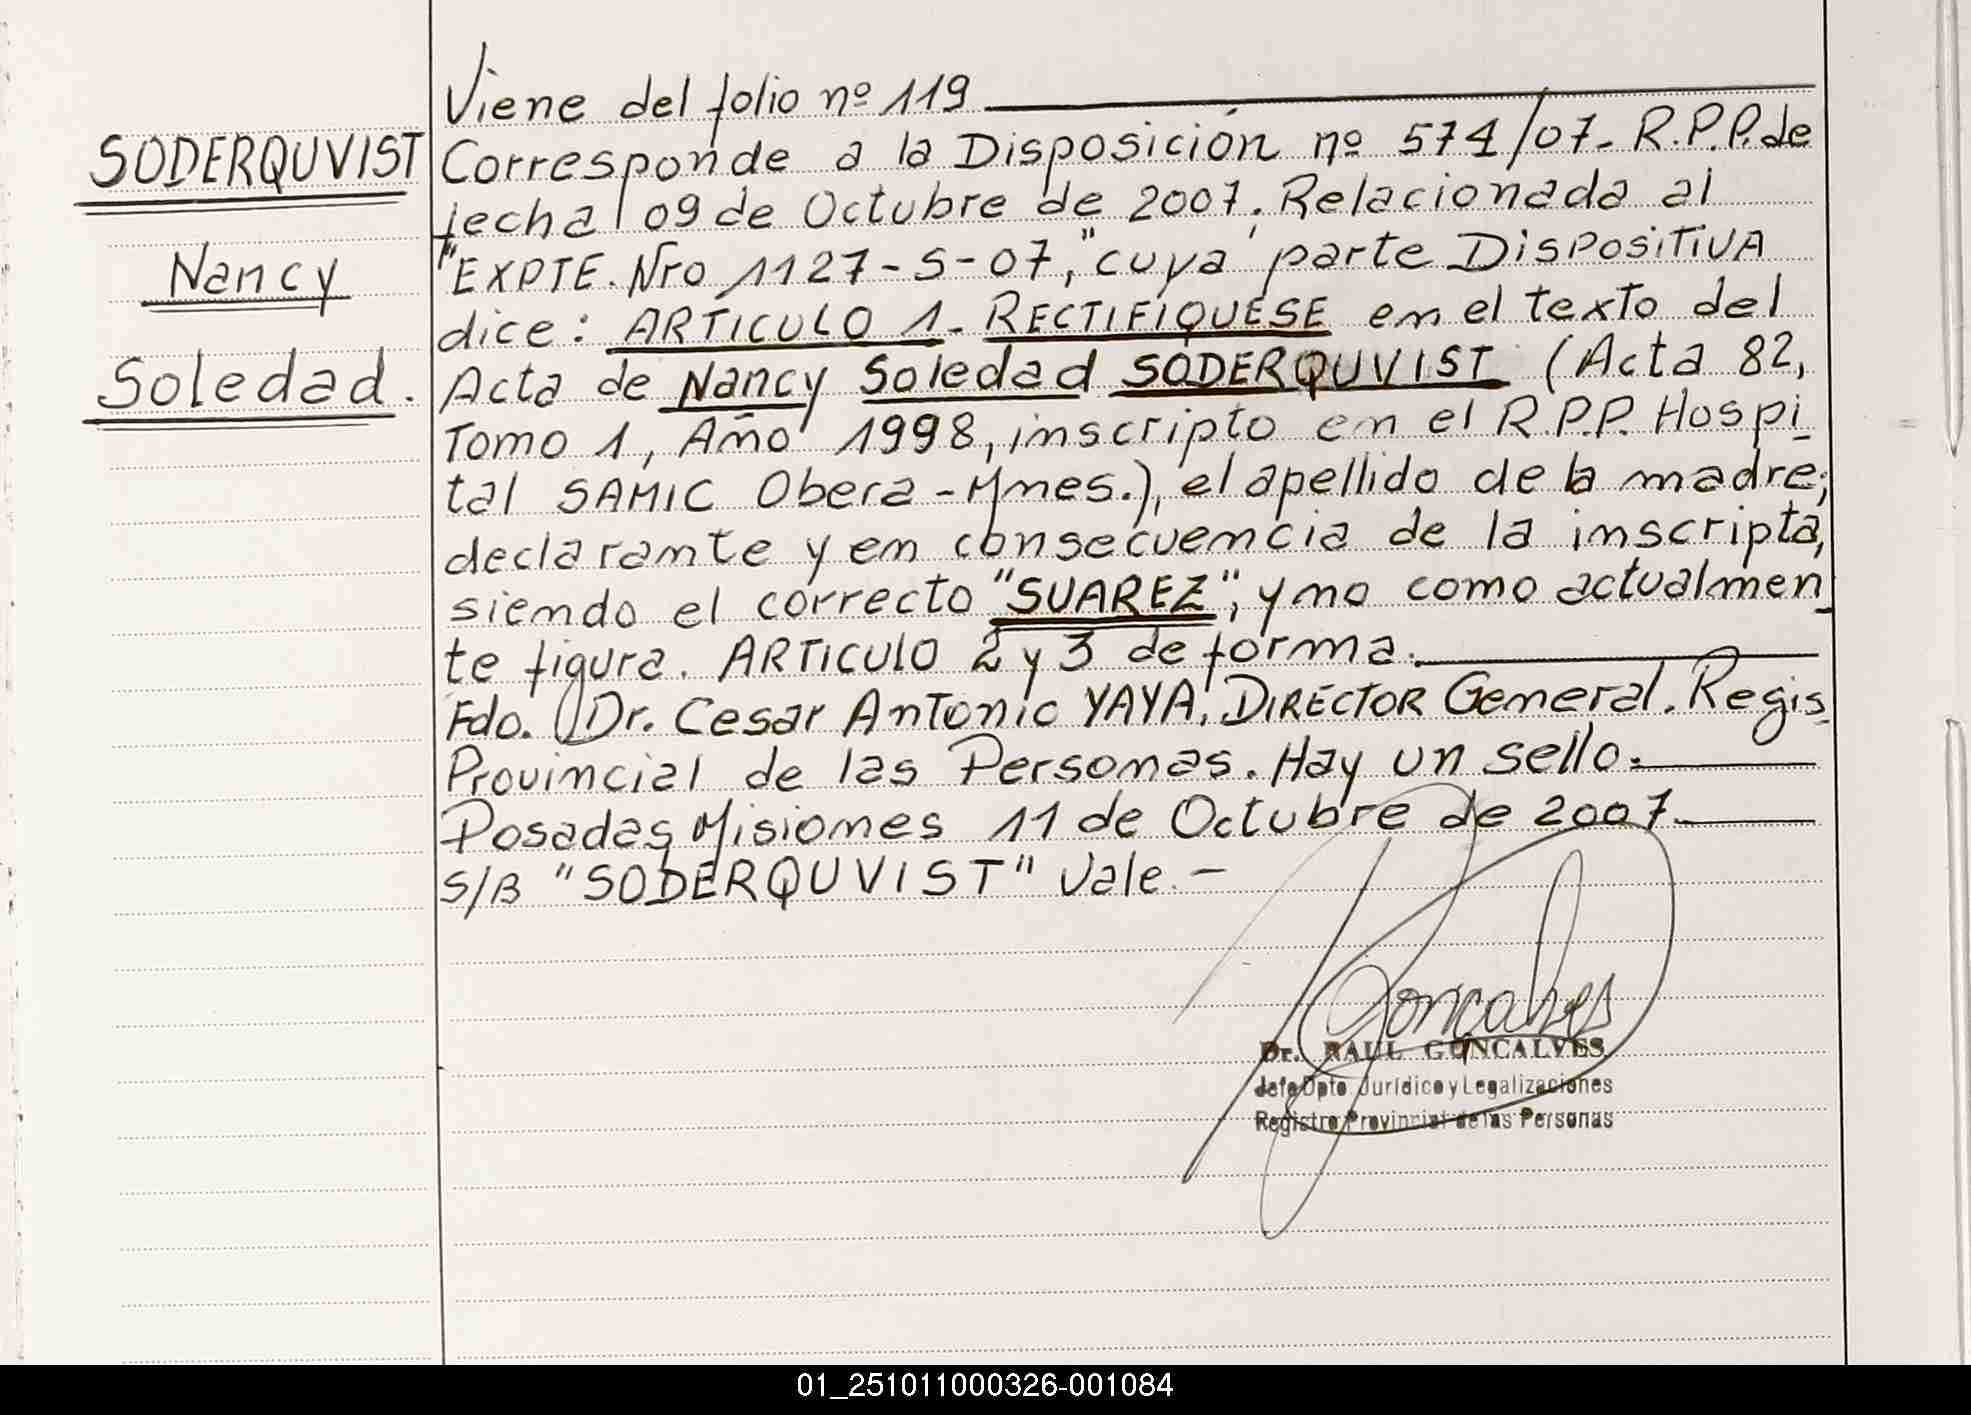 Viene del folio nº 119
SODERQUVIST
Nancy
Soledad.
Corresponde a la Disposición nº 574/07- R.P.P. de
fecha 09 de Octubre de 2007. Relacionada al
"EXPTE. Nro 1127-S-07," cuya parte DISPOSITIVA
dice: ARTICULO 1- RECTIFÍQUESE en el texto del
Acta de Nancy Soledad SODERQUVIST (Acta 82,
Tomo 1, Año 1998, inscripto en el R.P.P. Hospi-
tal SAMIC Obera - Mnes.), el apellido de la madre,
declarante y en consecuencia de la inscripta,
siendo el correcto "SUAREZ", y no como actualmen-
te figura. ARTICULO 2 y 3 de forma.
Fdo. Dr. Cesar Antonio YAYA, DIRECTOR General. Regis.
Provincial de las Personas. Hay un sello.
Posadas Misiones 11 de Octubre de 2007.
S/B "SODERQUVIST" Vale.-
Goncalves
Dr. RAUL GONCALVES
Jefe Dpto Jurídico y Legalizaciones
Registro Provincial de las Personas
01_251011000326-001084